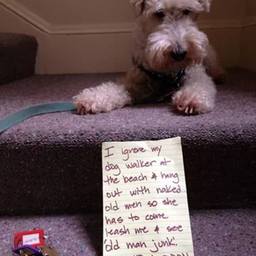 I ignore my
dog walker at
the beach & hang
out with naked
old men so she
has to come
leash me & see
'old man junk'.